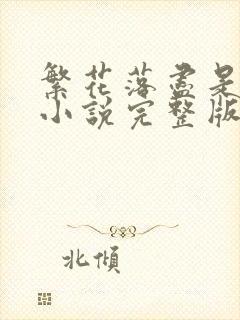 繁花落盡是
小説完整版
北傾